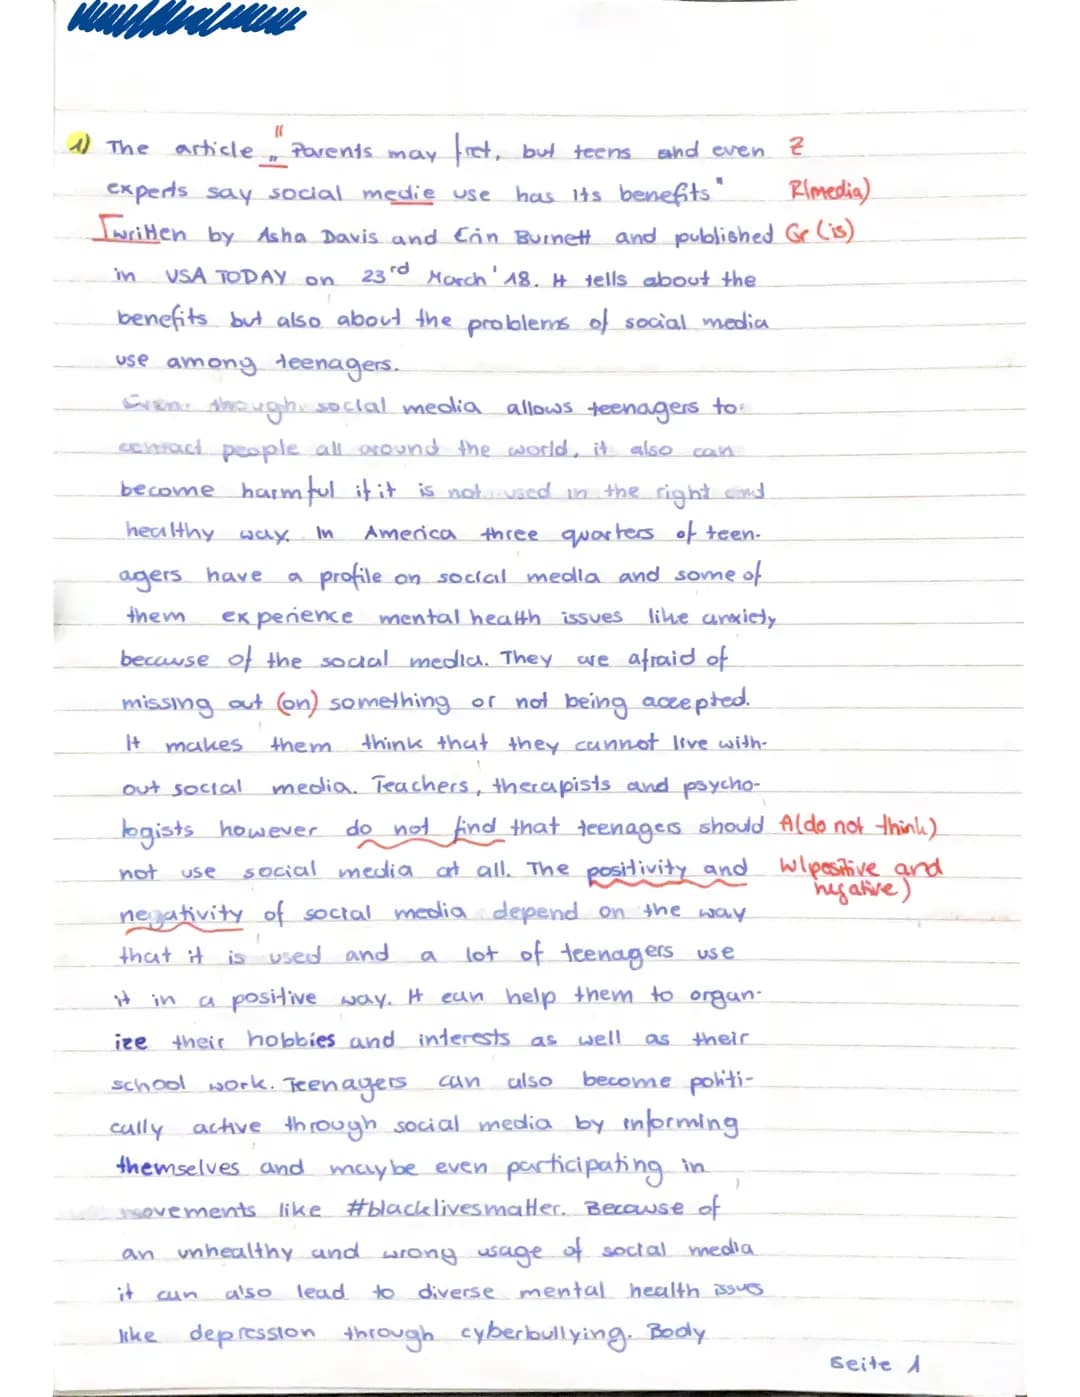 1) The article „" Parents may fret, but teens and even Z
experts say social medie use has its benefits" R(media)
[written by Asha Davis and Erin Burnett and published Gr (is)
in USA TODAY on 23rd March '18. It tells about the
benefits but also about the problems of social media
use among teenagers.
Even though social media allows teenagers to
contact people all around the world, it also can
become harmful if it is not used in the right and
healthy way. In America three quarters of teen-
agers have a profile on social media and some of
them experience mental health issues like anxiety
because of the social media. They are afraid of
missing out (on) something or not being accepted.
It makes them think that they cannot live with-
out social media. Teachers, therapists and psycho-
logists however do not find that teenagers should A(do not think)
not use social media at all. The positivity and W(positive and
negative)
negativity of social media depend on the way
that it is used and a lot of teenagers use
it in a positive way. It can help them to organ-
ize their hobbies and interests as well as their
school work. Teenagers can also become politi-
cally active through social media by informing
themselves and maybe even participating in
movements like #blacklivesmatter. Because of
an unhealthy and wrong usage of social media
it can also lead to diverse mental health issues
like depression through cyberbullying. Body
Seite 1